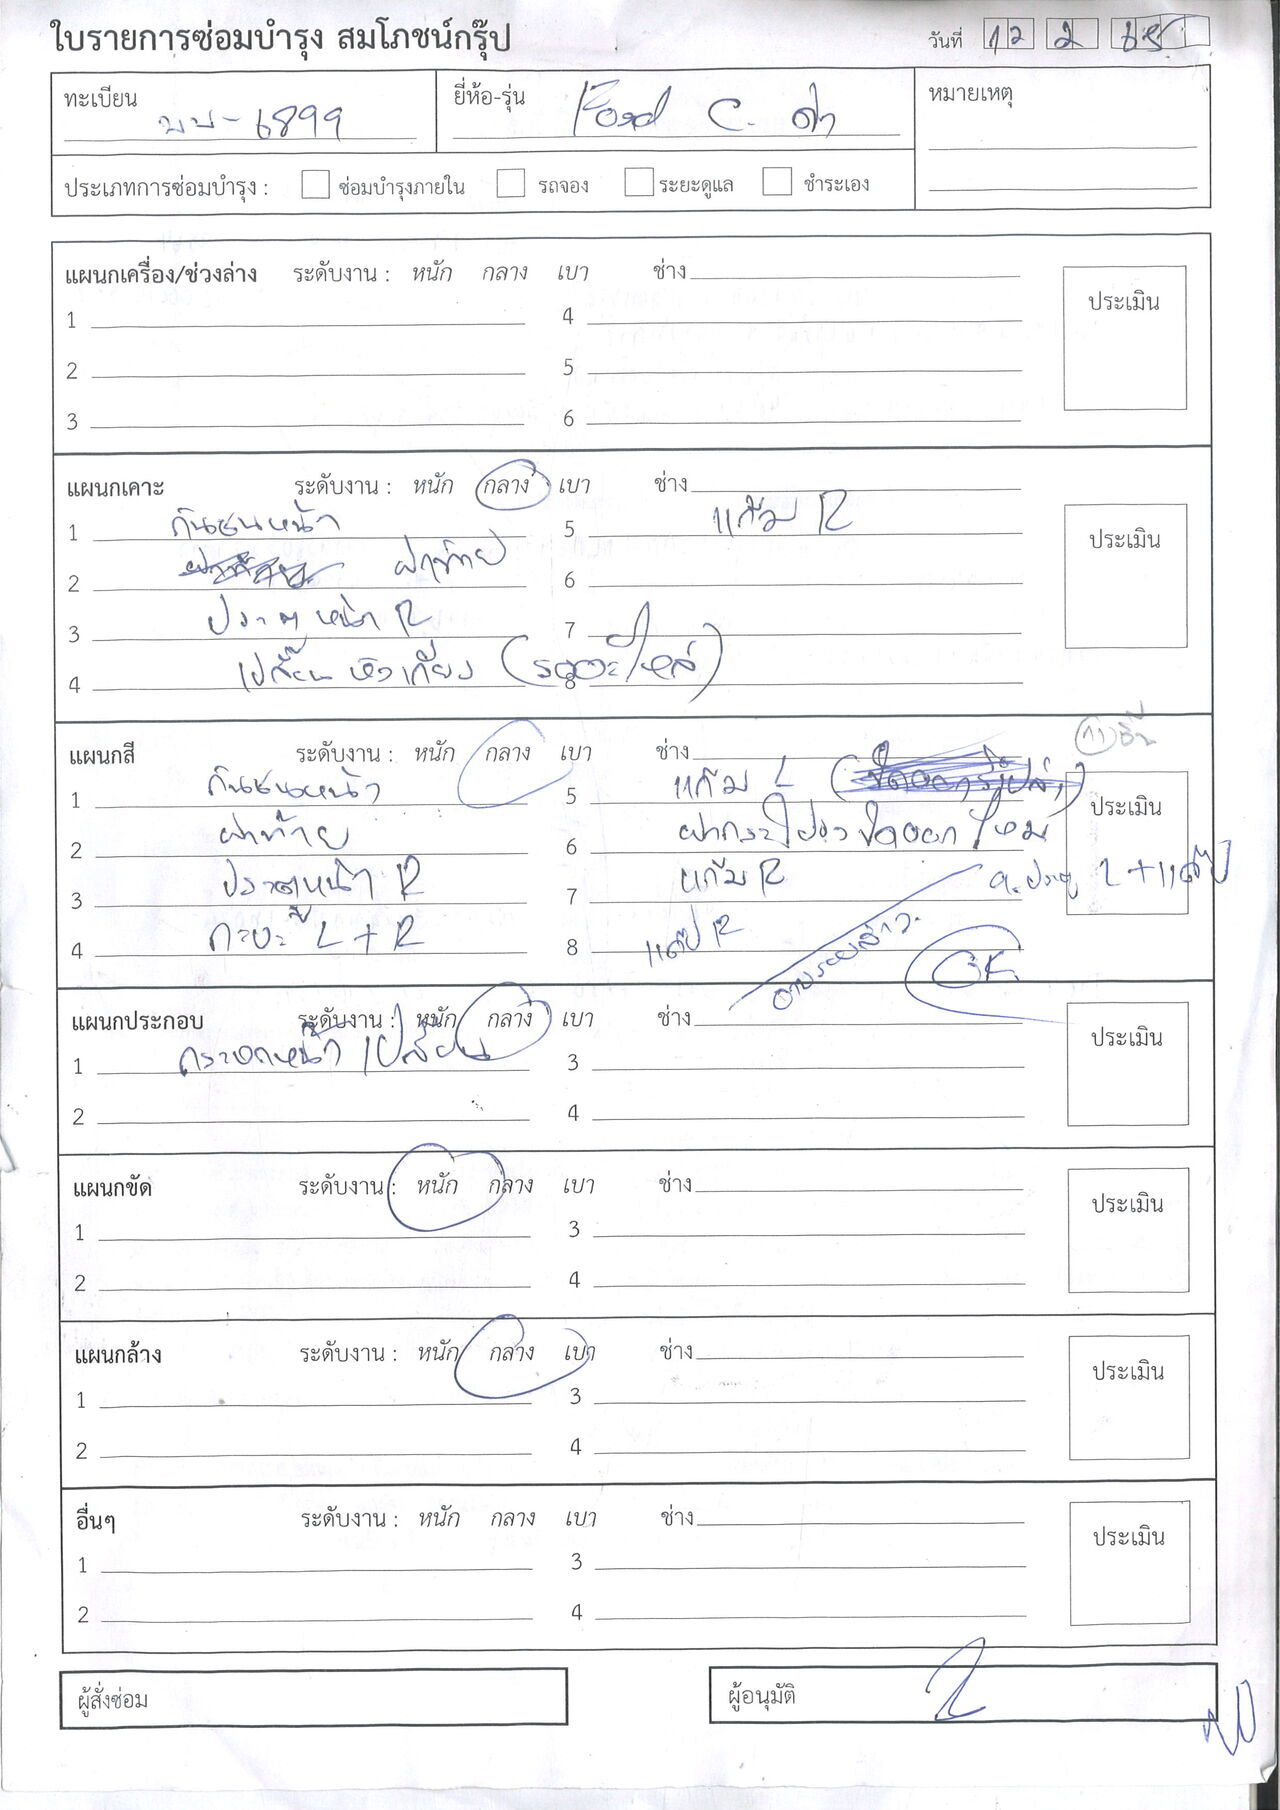 ใบรายการซ่อมบำรุง สมโภชน์กรุ๊ป
วันที่ 12 2 65
ทะเบียน บบ-6899
ยี่ห้อ-รุ่น Ford C. ดำ
หมายเหตุ
ประเภทการซ่อมบำรุง : ซ่อมบำรุงภายใน รถจอง ระยะดูแล ชำระเอง
แผนกเครื่อง/ช่วงล่าง ระดับงาน : หนัก กลาง เบา ช่าง
ประเมิน
1 4
2 5
3 6
แผนกเคาะ ระดับงาน : หนัก กลาง เบา ช่าง
ประเมิน
1 กันชนหน้า 5 แก้ม R
2 ฝาท้าย 6
3 ประตูหน้า R 7
4 เปลี่ยน หัวเก๋ง (รออะไหล่) 8
แผนกสี ระดับงาน : หนัก กลาง เบา ช่าง
11 ชิ้น
ประเมิน
1 กันชนหน้า 5 แก้ม L
2 ฝาท้าย 6 ฝากระโปรง ขัดออกไหม
3 ประตูหน้า R 7 แก้ม R
9. ประตู L + แค๊ป
4 กะบะ L + R 8 แค๊ป R
OK
แผนกประกอบ ระดับงาน : หนัก กลาง เบา ช่าง
ประเมิน
1 กระจกหน้า เปลี่ยน 3
2 4
แผนกขัด ระดับงาน : หนัก กลาง เบา ช่าง
ประเมิน
1 3
2 4
แผนกล้าง ระดับงาน : หนัก กลาง เบา ช่าง
ประเมิน
1 3
2 4
อื่นๆ ระดับงาน : หนัก กลาง เบา ช่าง
ประเมิน
1 3
2 4
ผู้สั่งซ่อม
ผู้อนุมัติ